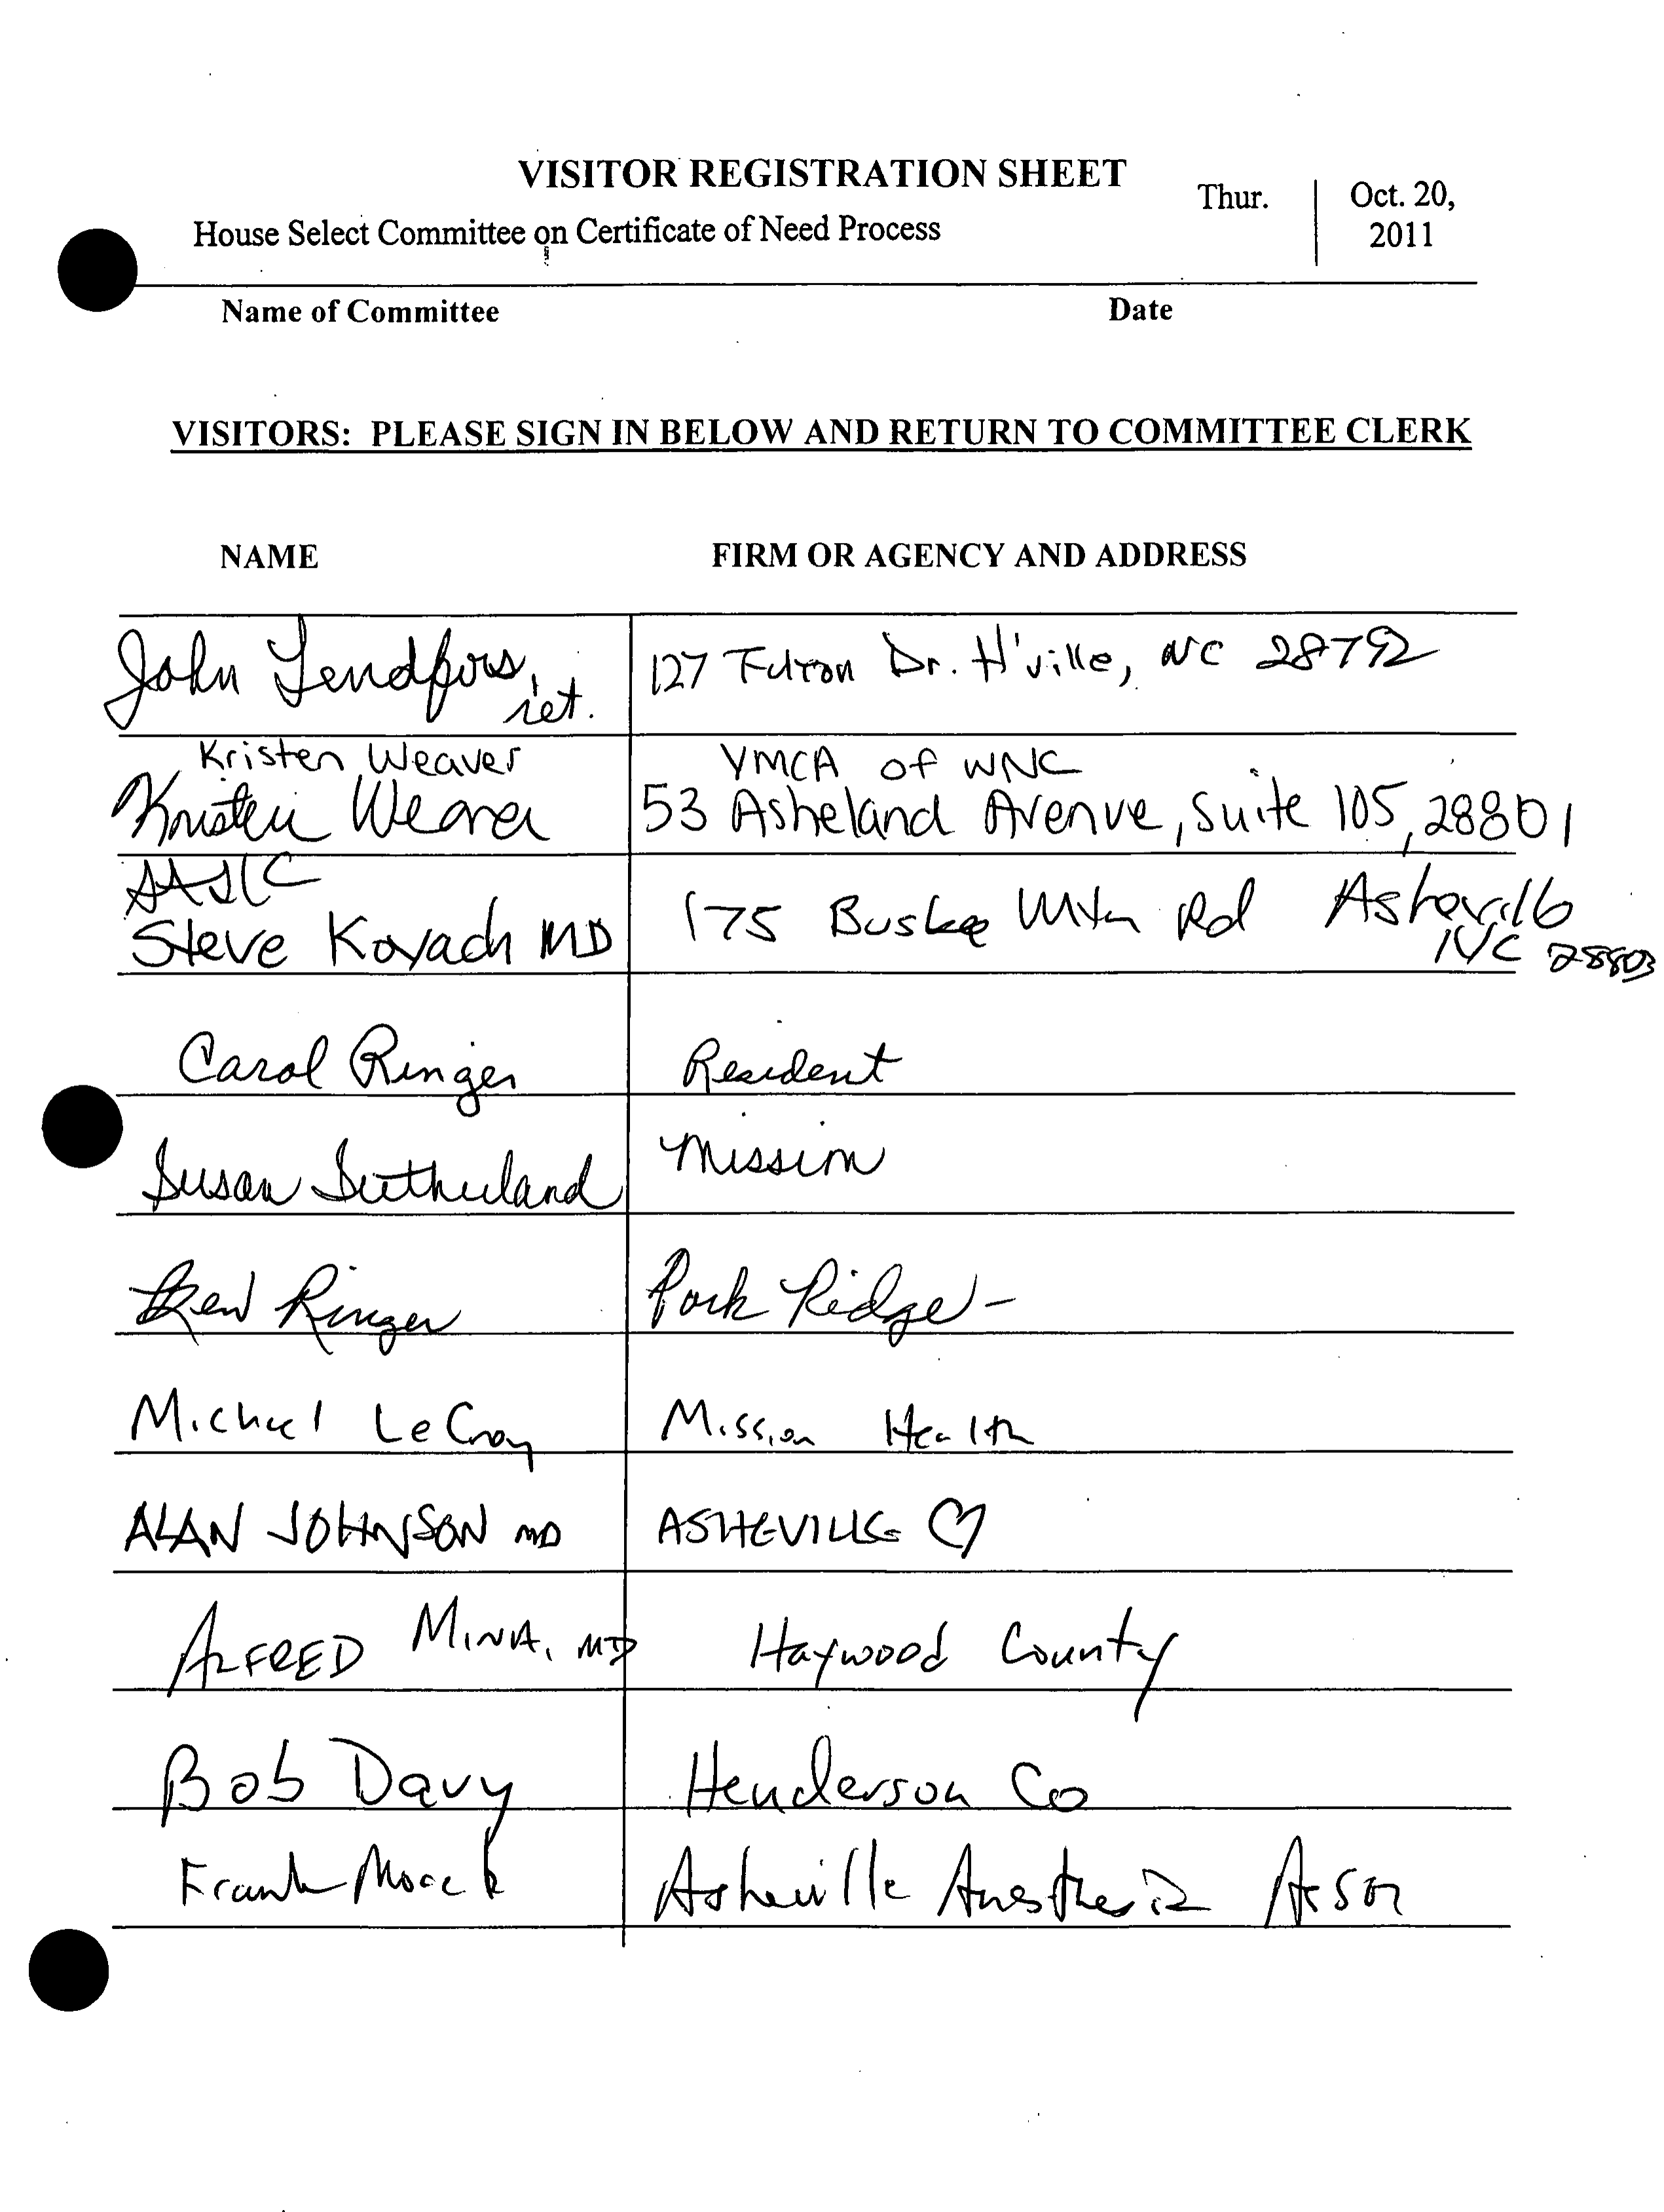 VISITOR REGISTRATION SHEET
Thur. Oct. 20, 2011
House Select Committee on Certificate of Need Process
Name of Committee Date
VISITORS: PLEASE SIGN IN BELOW AND RETURN TO COMMITTEE CLERK
NAME FIRM OR AGENCY AND ADDRESS
John ret. 127 Dr. H'ville, NC 28792
Kristen Weaver YMCA of WNC
Kristen Weaver 53 Asheland Avenue, Suite 105, 28801
Steve MD 175 Mtn Rd Asheville
NC 28803
Carol Ringer Resident
Susan Sutherland Mission
Ringer Park Ridge -
Michael LeCroy Mission Health
ALAN JOHNSON MD ASHEVILLE ♡
ALFRED MINA, MD Haywood County
Bob Davy Henderson Co
Frank Asheville Anesthesia